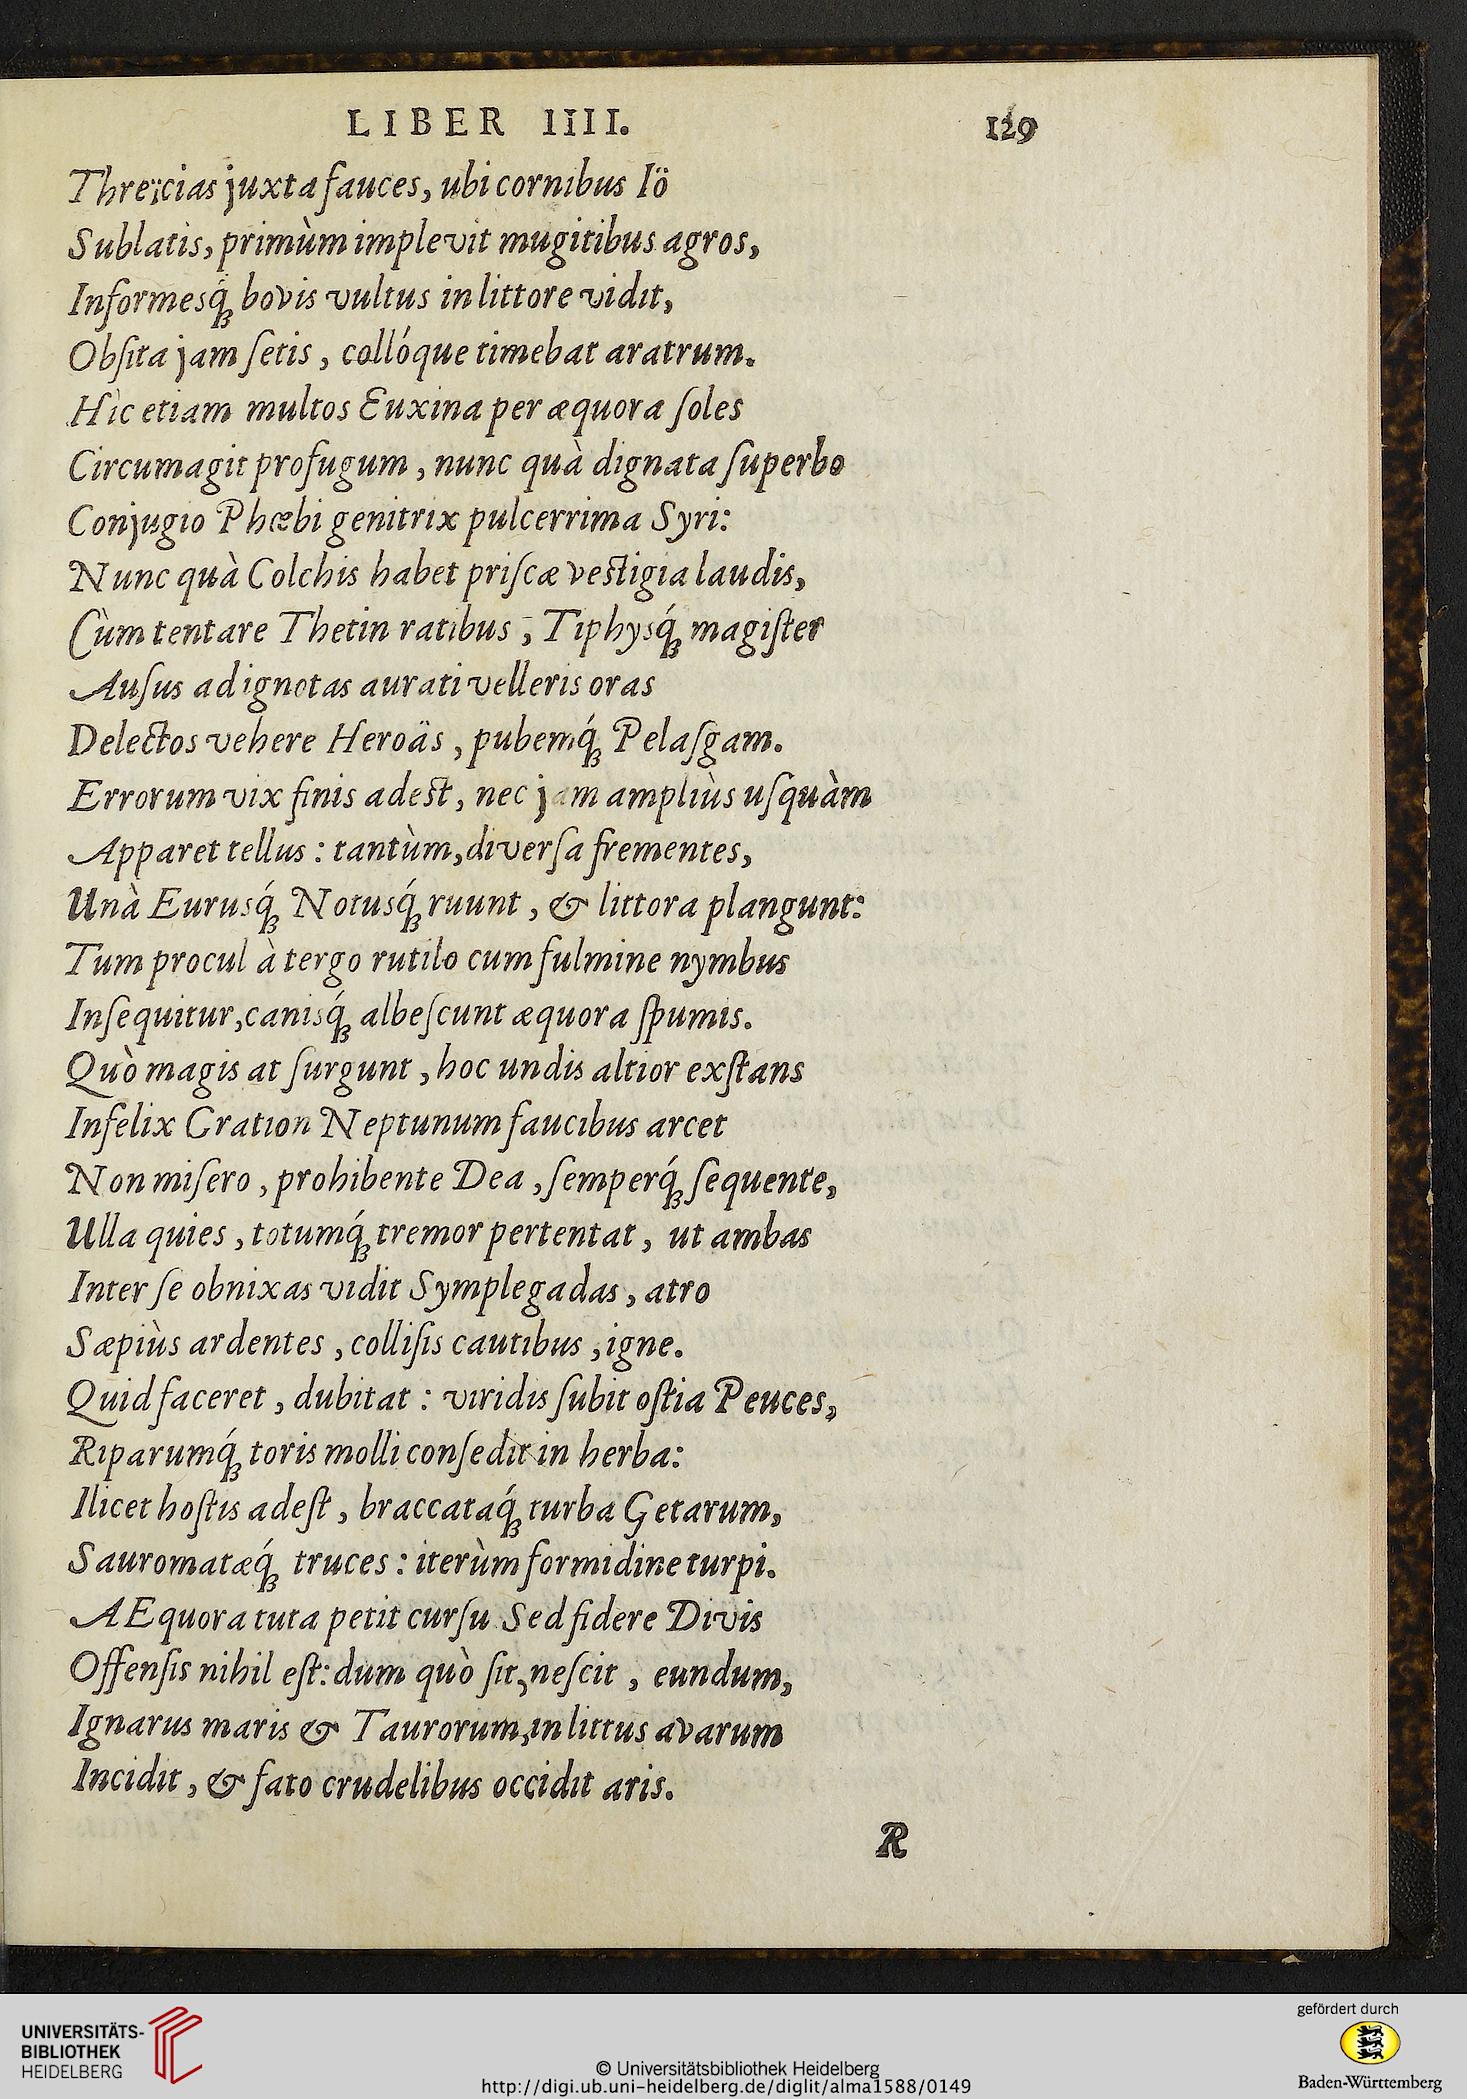 LIBER IIII. 129
Threïcias juxta fauces, ubi cornibus Iö
Sublatis, primùm implevit mugitibus agros,
Informesq́; bovis vultus in littore vidit,
Obſita jam ſetis, collóque timebat aratrum.
Hìc etiam multos Euxina per æquora ſoles
Circumagit profugum, nunc quà dignata ſuperbo
Conjugio Phœbi genitrix pulcerrima Syri:
Nunc quà Colchis habet priſcæ veſtigia laudis,
Cùm tentare Thetin ratibus, Tiphysq́; magiſter
Auſus ad ignotas aurati velleris oras
Delectos vehere Heroäs, pubemq́; Pelaſgam.
Errorum vix finis adeſt, nec jam ampliùs uſquàm
Apparet tellus: tantùm, diverſa frementes,
Unà Eurusq́; Notusq́; ruunt, & littora plangunt:
Tum procul à tergo rutilo cum fulmine nymbus
Inſequitur, canisq́; albeſcunt æquora ſpumis.
Quò magis at ſurgunt, hoc undis altior exſtans
Infelix Gration Neptunum faucibus arcet
Non miſero, prohibente Dea, ſemperq́; ſequente,
Ulla quies, totumq́; tremor pertentat, ut ambas
Inter ſe obnixas vidit Symplegadas, atro
Sæpiùs ardentes, colliſis cautibus, igne.
Quid faceret, dubitat: viridis ſubit oſtia Peuces,
Riparumq́; toris molli conſedit in herba:
Ilicet hoſtis adeſt, braccataq́; turba Getarum,
Sauromatæq́; truces: iterùm formidine turpi.
AEquora tuta petit curſu Sed fidere Divis
Offenſis nihil eſt: dum quò ſit, neſcit, eundum,
Ignarus maris & Taurorum, in littus avarum
Incidit, & fato crudelibus occidit aris.
R
UNIVERSITÄTS-
BIBLIOTHEK
HEIDELBERG
© Universitätsbibliothek Heidelberg
http://digi.ub.uni-heidelberg.de/diglit/alma1588/0149
gefördert durch
Baden-Württemberg